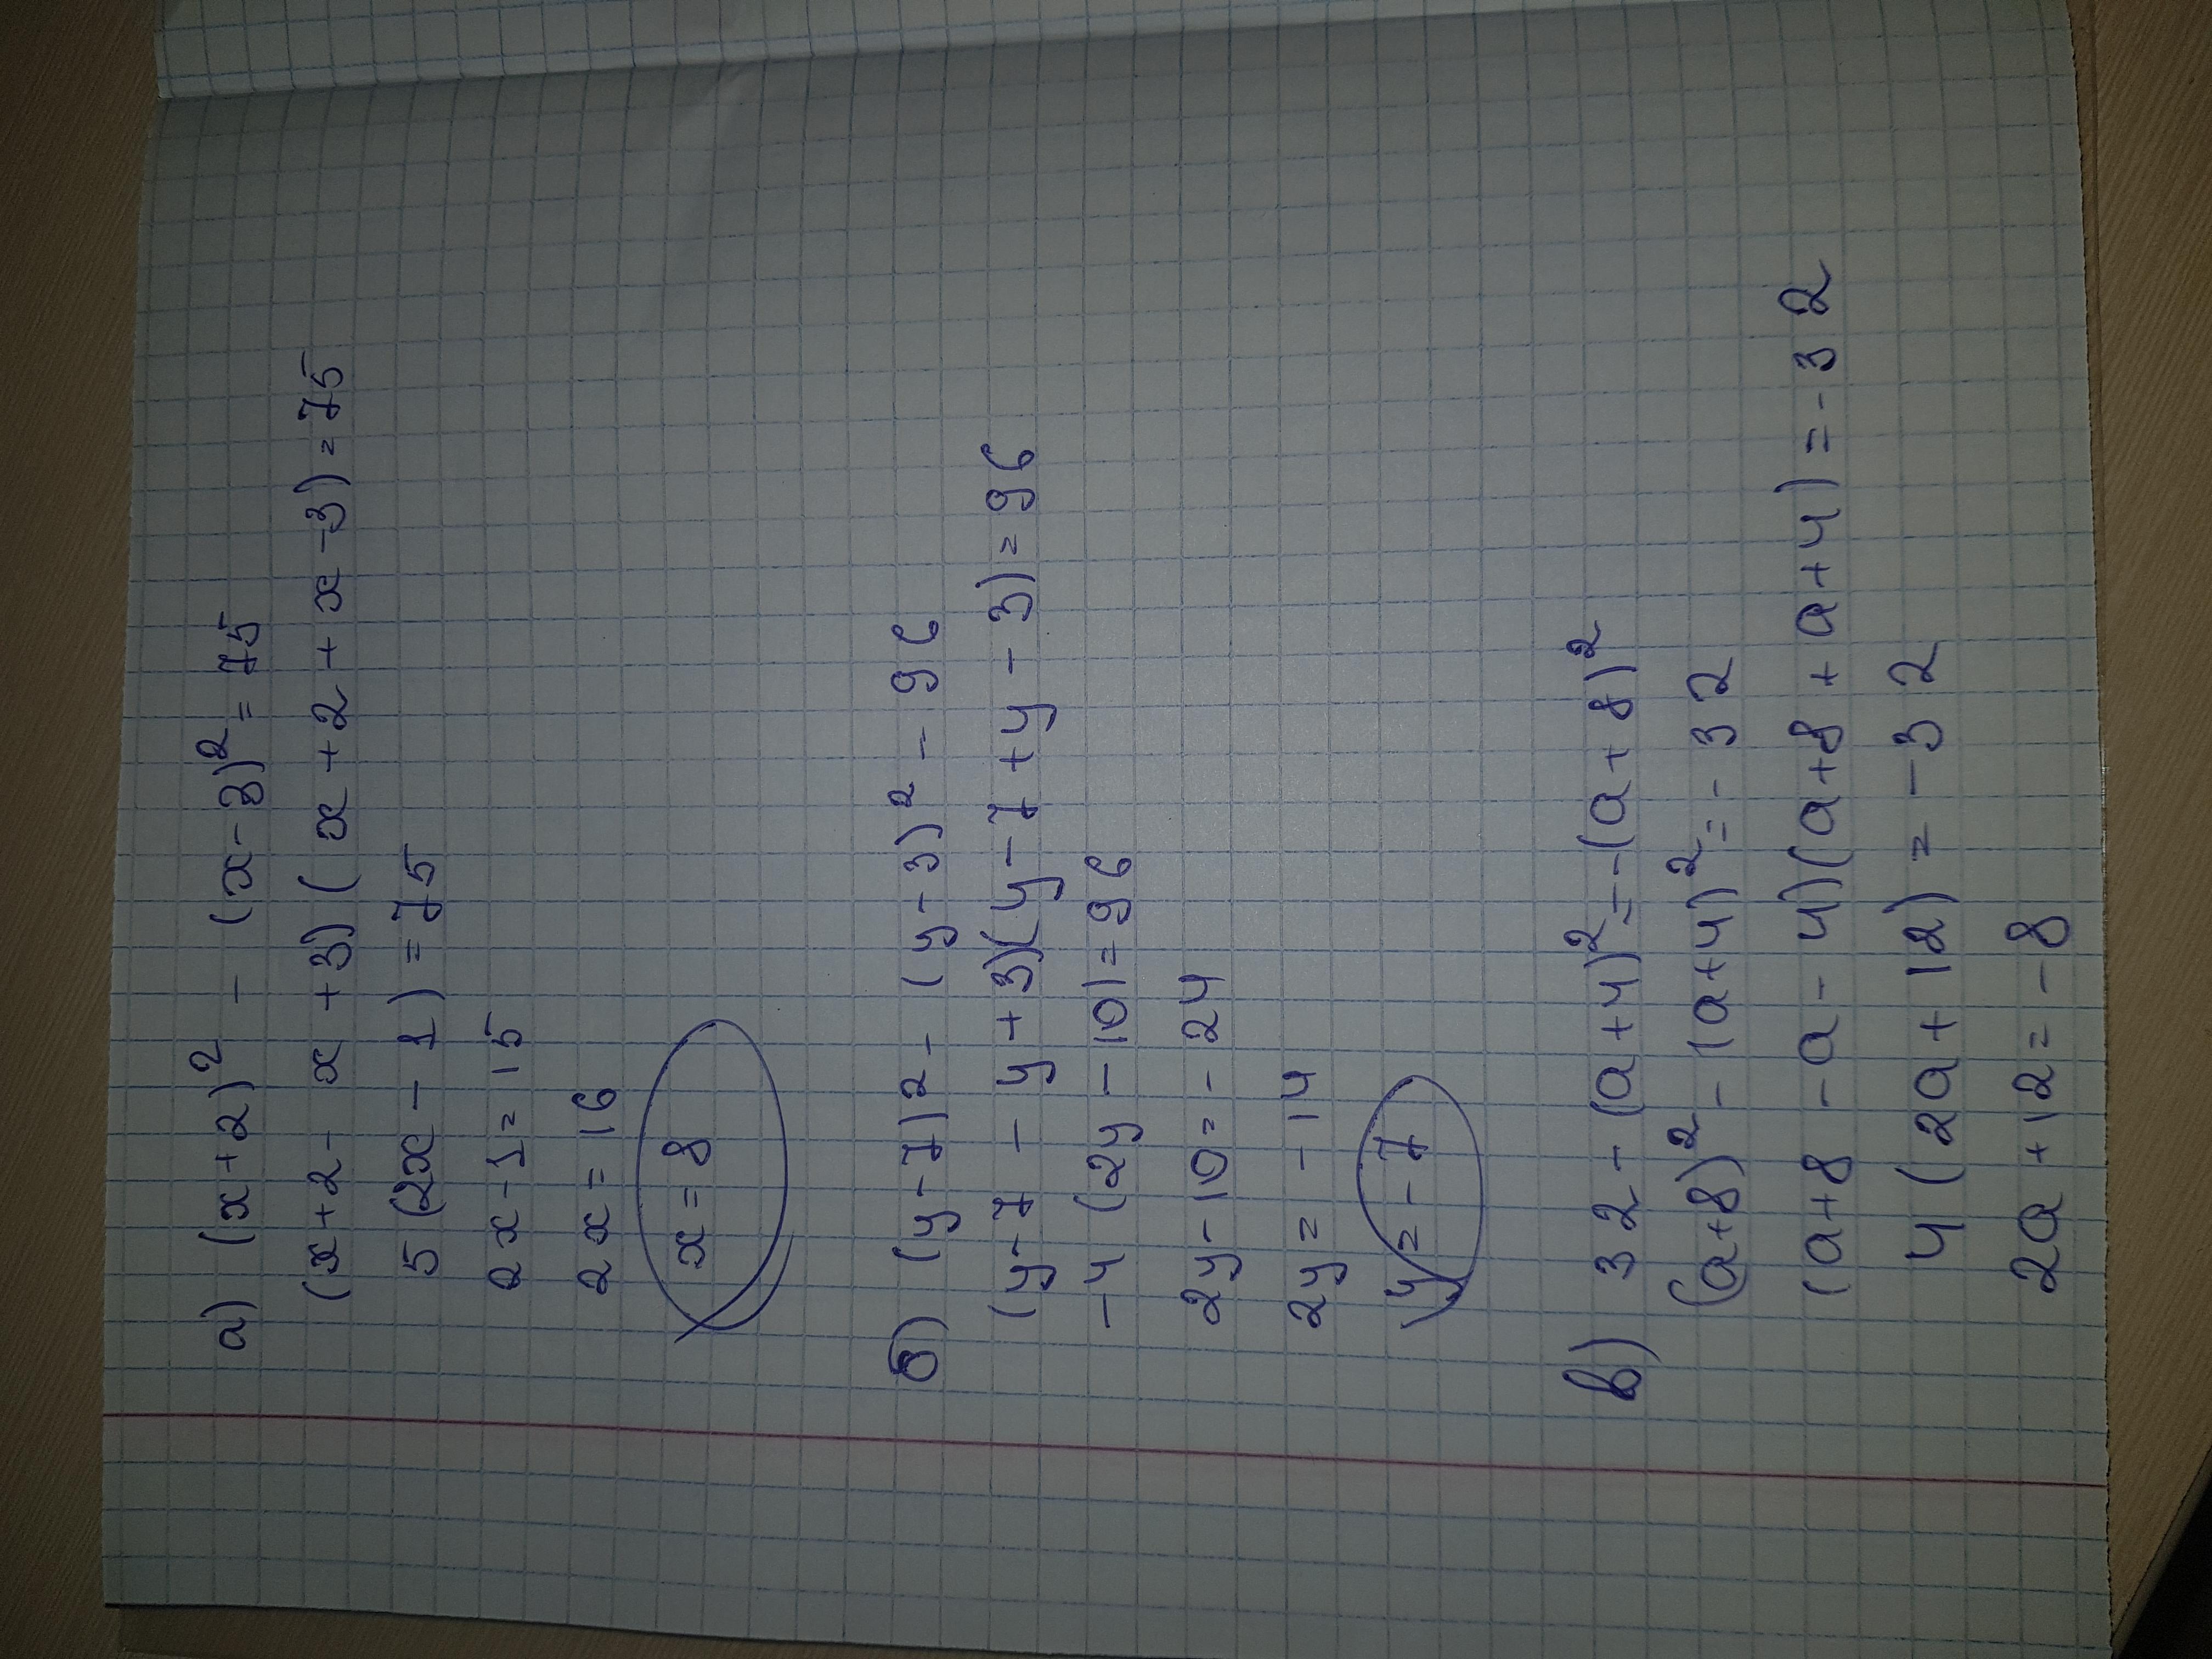 а) (x+2)² - (x-3)² = 75
(x+2 - x +3) ( x +2 + x -3) = 75
5 (2x - 1) = 75
2x-1 = 15
2x = 16
x = 8
б) (y-7)² - (y-3)² - 96
(y-7 - y +3)(y-7 +y - 3) = 96
-4 (2y - 10) = 96
2y-10 = - 24
2y = - 14
y = - 7
в) 32 - (a+4)² = - (a+8)²
(a+8)² - (a+4)² = - 32
(a+8 - a - 4)(a+8 + a+4) = - 32
4 (2a + 12) = - 32
2a +12 = - 8